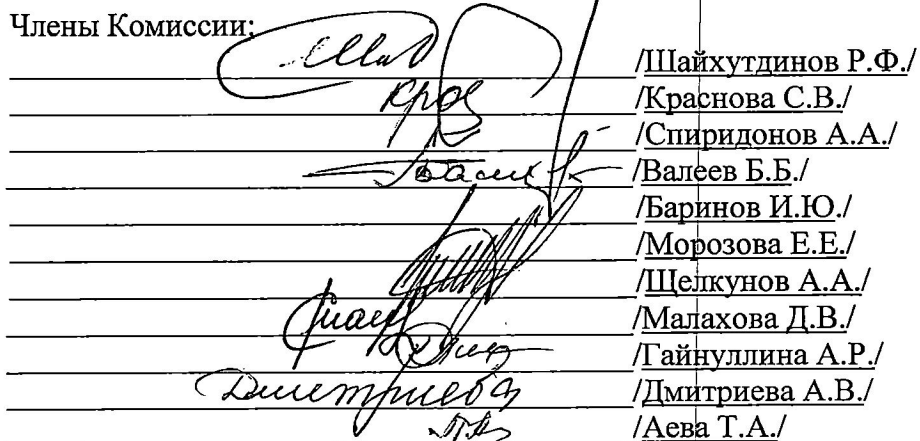 Члены Комиссии:
/Шайхутдинов Р.Ф./
/Краснова С.В./
/Спиридонов А.А./
/Валеев Б.Б./
/Баринов И.Ю./
/Морозова Е.Е./
/Щелкунов А.А./
/Малахова Д.В./
/Гайнуллина А.Р./
Дмитриева /Дмитриева А.В./
/Аева Т.А./